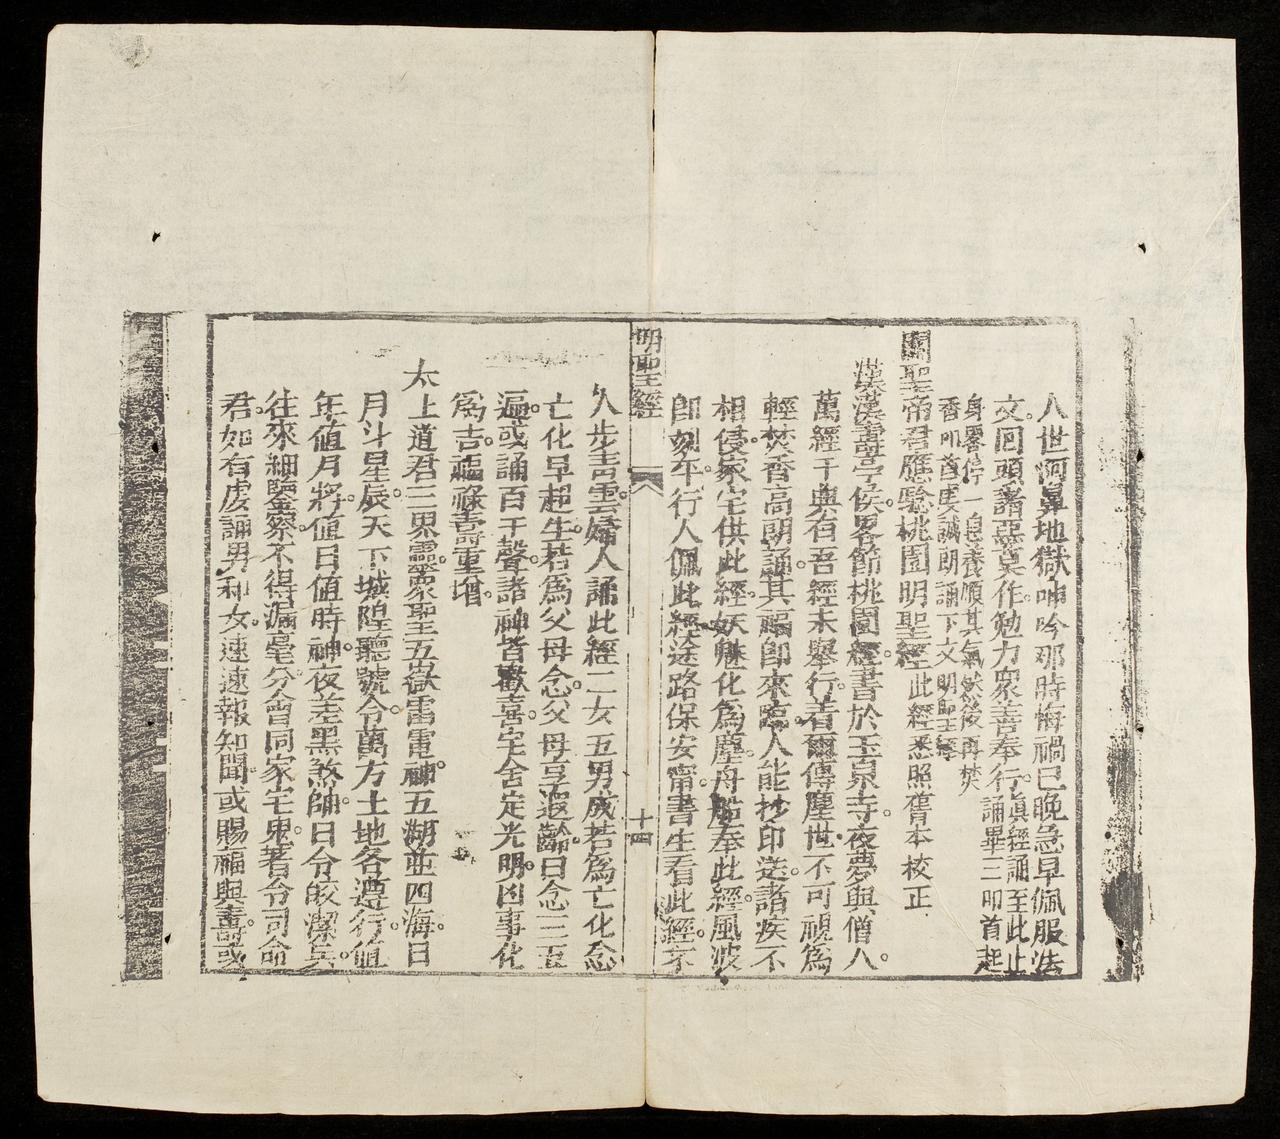 入世阿鼻地獄呻吟那時悔禍已晚急早佩服法
文回頭諸惡莫作勉力眾善奉行真經誦至此止
誦畢三叩首起
身畧停一息養順其氣然後再焚
香叩首虔誠朗誦下文明聖經
關聖帝君應驗桃園明聖經此經悉照舊本校正
漢漢壽亭侯畧節桃園經書於玉泉寺夜夢與僧人
萬經千典有吾經未舉行着爾傳塵世不可視為
輕焚香高朗誦其福卽來臨人能抄印送諸疾不
相侵家宅供此經妖魅化為塵舟船奉此經風波
卽刻平行人佩此經途路保安甯書生看此經不
明聖經
十四
久步青雲婦人誦此經二女五男成若為亡化念
亡化早超生若為父母念父母享遐齡日念三五
遍或誦百千聲諸神皆歡喜宅舍定光明凶事化
為吉福祿壽重增
太上道君三界靈眾聖五嶽雷電神五湖並四海日
月斗星辰天下城隍聽號令萬方土地各遵行值
年值月將值日值時神夜差黑煞帥日令皎潔兵
往來細鑒察不得漏毫分會同家宅鬼著令司命
君如有虔誦男和女速速報知聞或賜福與壽或